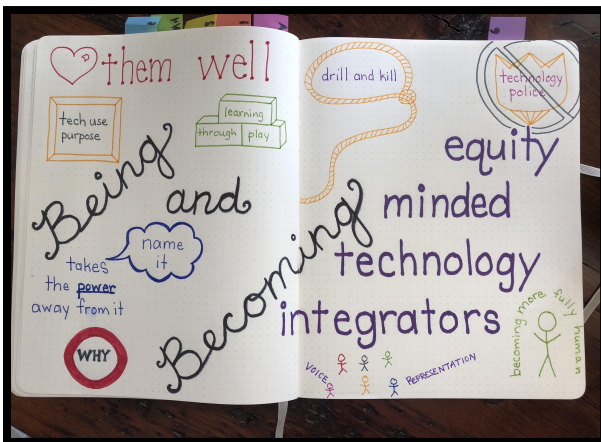 them well
tech use
purpose
learning
through play
Being
and
Becoming
name
it
takes
the power
away from it
WHY
drill and kill
technology
police
equity
minded
technology
integrators
becoming more fully human
VOICE
REPRESENTATION